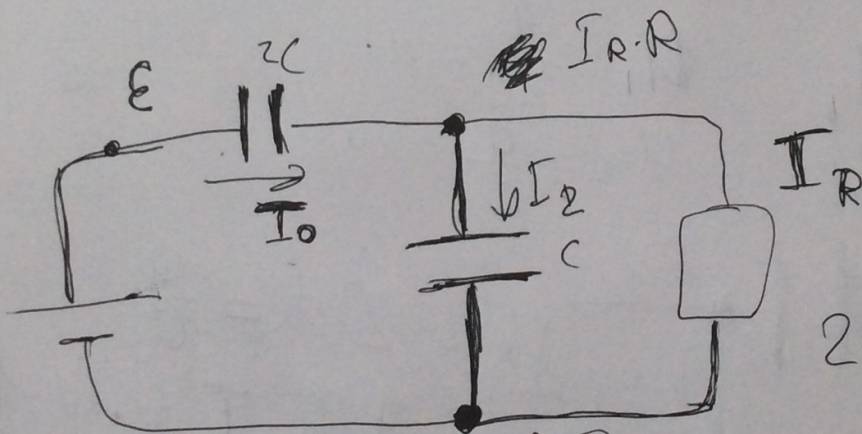 ε
2C
I_R·R
I_0
I_2
C
I_R
2